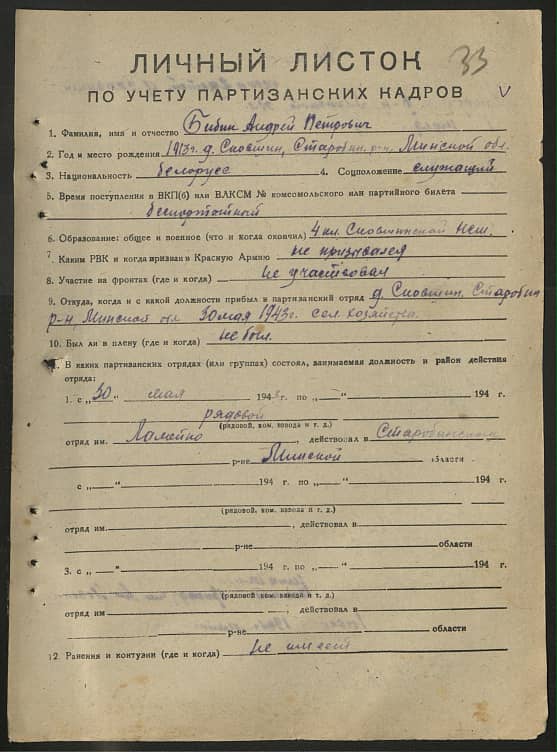 33
ЛИЧНЫЙ ЛИСТОК
ПО УЧЕТУ ПАРТИЗАНСКИХ КАДРОВ
1. Фамилия, имя и отчество Бибик Андрей Петрович
2. Год и место рождения 1913 г. д. Сковшин, Старобин. р-н, Минской обл.
3. Национальность белорус 4. Соцположение служащий
5. Время поступления в ВКП(б) или ВЛКСМ № комсомольского или партийного билета
беспартийный
6. Образование: общее и военное (что и когда окончил) 4 кл. Сковшинской
7. Каким РВК и когда призван в Красную Армию не призывался
8. Участие на фронтах (где и когда) не участвовал
9. Откуда, когда и с какой должности прибыл в партизанский отряд д. Сковшин, Старобин
р-н, Минской обл 30 мая 1943 г. сел. хозяйства.
10. Был ли в плену (где и когда) не был.
11. В каких партизанских отрядах (или группах) состоял, занимаемая должность и район действия
отряда:
1. с „30“ мая 1943 г. по „ “ 194 г.
рядовой
(рядовой, ком. взвода и т. д.)
отряд им. , действовал в Старобинском
р-не Минской области
с „ “ 194 г. по „ “ 194 г.
(рядовой, ком. взвода и т. д.)
отряд им. , действовал в
р-не области
3. с „ “ 194 г. по „ “ 194 г.
(рядовой, ком. взвода и т. д.)
отряд им. , действовал в
р-не области
12. Ранения и контузии (где и когда) не имеет